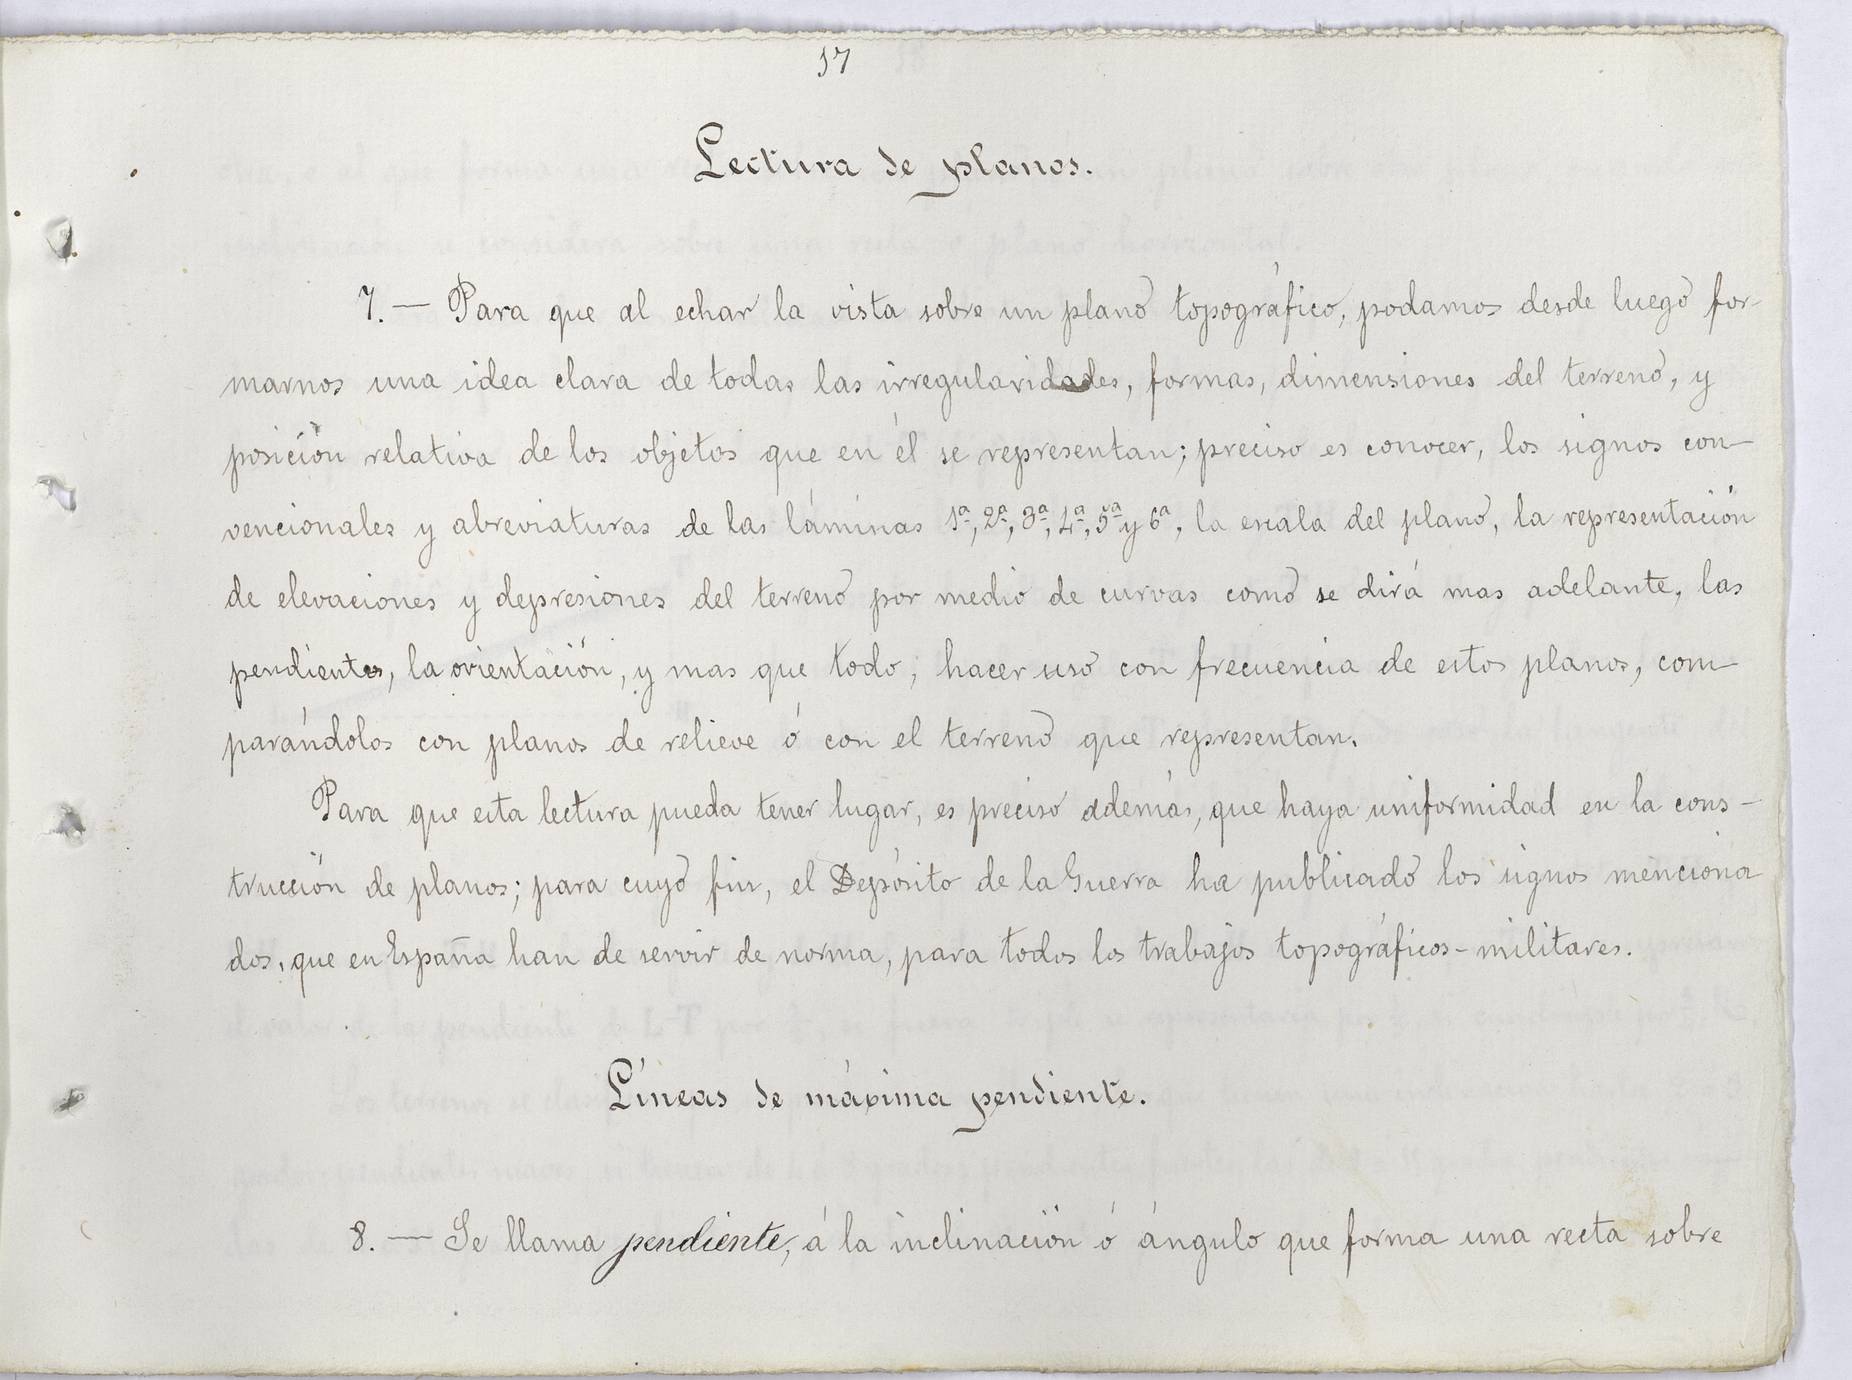 17
Lectura de planos.
7. — Para que al echar la vista sobre un plano topográfico, podamos desde luego for-
marnos una idea clara de todas las irregularidades, formas, dimensiones del terreno, y
posición relativa de los objetos que en él se representan; preciso es conocer, los signos con-
vencionales y abreviaturas de las láminas 1ª, 2ª, 3ª, 4ª, 5ª y 6ª, la escala del plano, la representación
de elevaciones y depresiones del terreno por medio de curvas como se dirá mas adelante, las
pendientes, la orientación, y mas que todo, hacer uso con frecuencia de estos planos, com-
parándolos con planos de relieve ó con el terreno que representan.
Para que esta lectura pueda tener lugar, es preciso además, que haya uniformidad en la cons-
trucción de planos; para cuyo fin, el Depósito de la Guerra ha publicado los signos menciona
dos, que en España han de servir de norma, para todos los trabajos topográficos-militares.
Líneas de máxima pendiente.
8. — Se llama pendiente, á la inclinación ó ángulo que forma una recta sobre